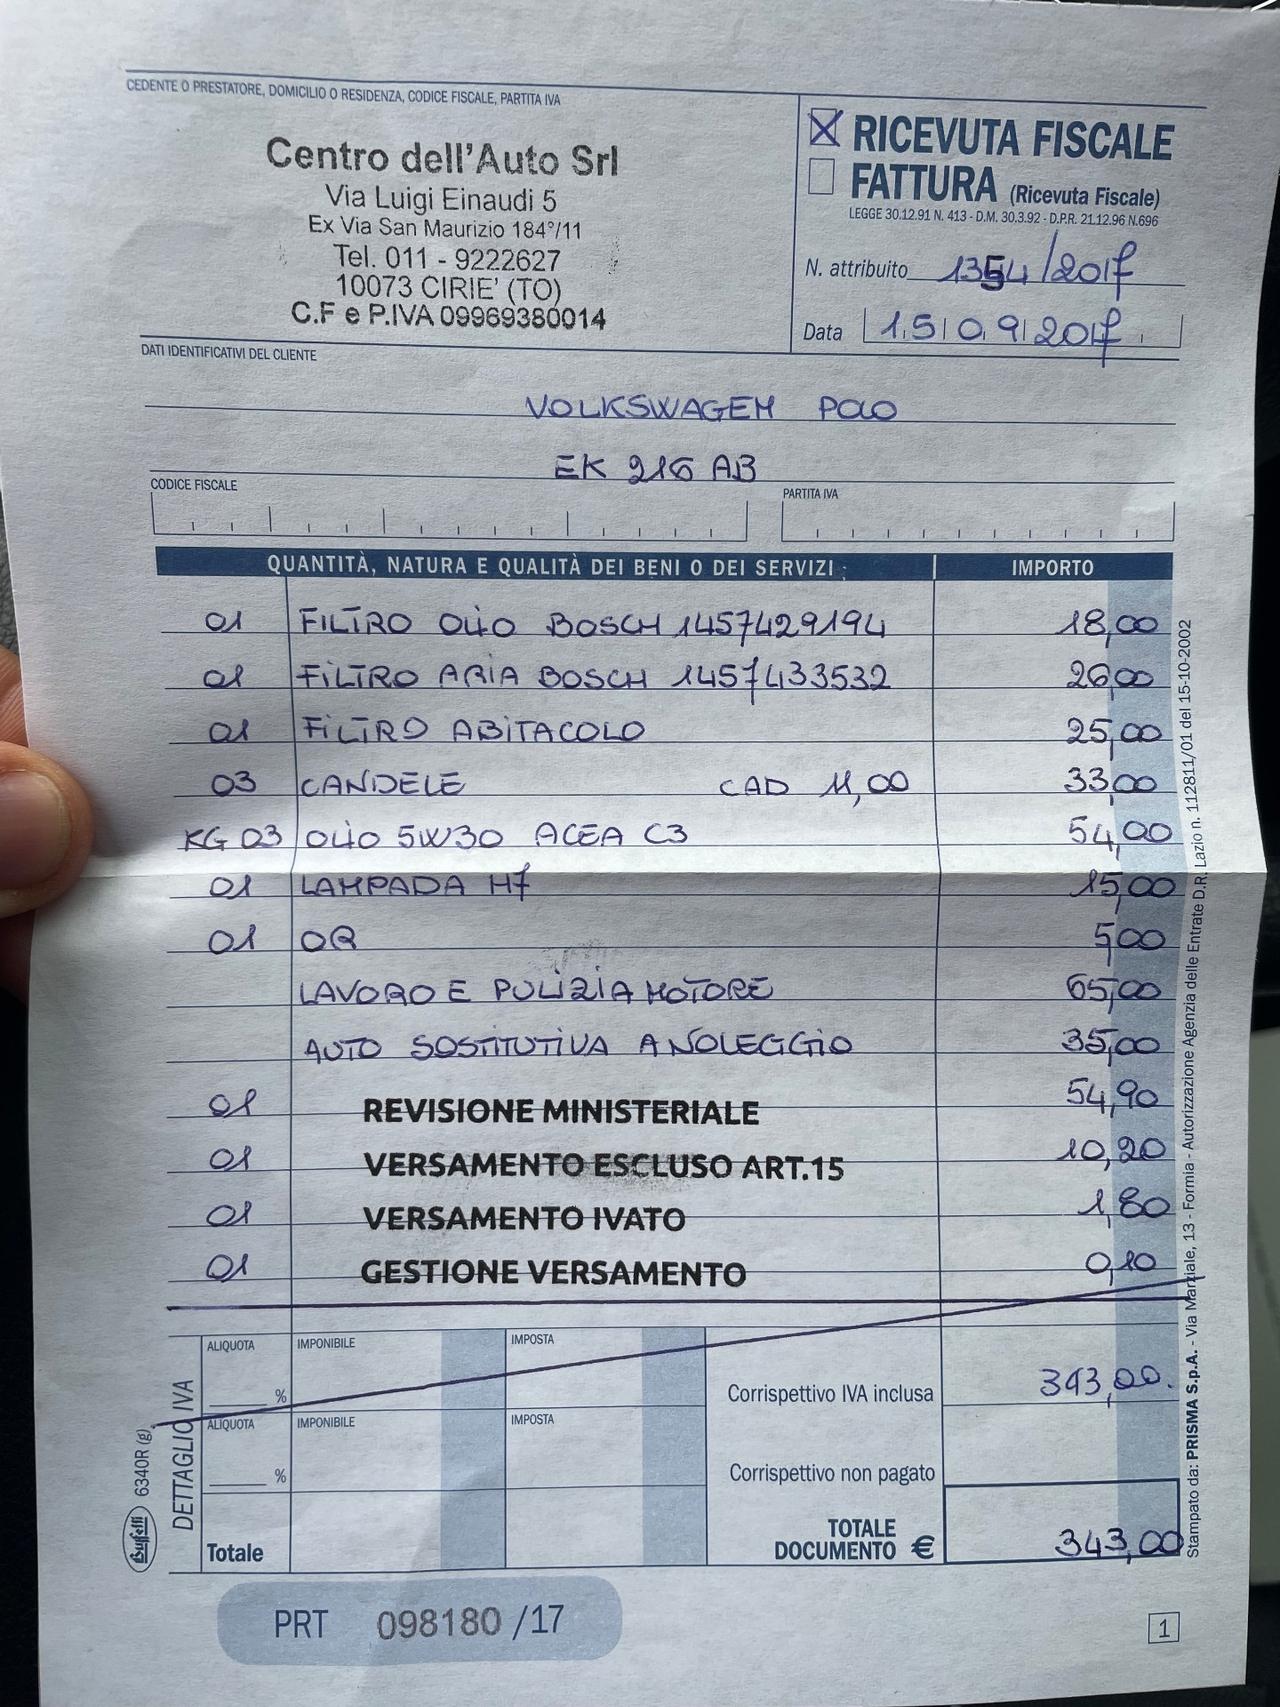 CEDENTE O PRESTATORE, DOMICILIO O RESIDENZA, CODICE FISCALE, PARTITA IVA
Centro dell'Auto Srl
Via Luigi Einaudi 5
Ex Via San Maurizio 184°/11
Tel. 011 - 9222627
10073 CIRIE' (TO)
C.F e P.IVA 09969380014
RICEVUTA FISCALE
FATTURA (Ricevuta Fiscale)
LEGGE 30.12.91 N. 413 - D.M. 30.3.92 - D.P.R. 21.12.96 N.696
N. attribuito 1354/2017
Data 15|09|2017
DATI IDENTIFICATIVI DEL CLIENTE
VOLKSWAGEM POLO
EK 216 AB
CODICE FISCALE
PARTITA IVA
QUANTITÀ, NATURA E QUALITÀ DEI BENI O DEI SERVIZI IMPORTO
01 FILTRO OLIO BOSCH 1457429194 18,00
01 FILTRO ARIA BOSCH 1457433532 26,00
01 FILTRO ABITACOLO 25,00
03 CANDELE CAD 11,00 33,00
KG 03 OLIO 5W30 ACEA C3 54,00
01 LAMPADA H7 15,00
01 OR 5,00
LAVORO E PULIZIA MOTORE 65,00
AUTO SOSTITUTIVA A NOLEGGIO 35,00
01 REVISIONE MINISTERIALE 54,90
01 VERSAMENTO ESCLUSO ART.15 10,20
01 VERSAMENTO IVATO 1,80
01 GESTIONE VERSAMENTO 0,10
DETTAGLIO IVA
ALIQUOTA IMPONIBILE IMPOSTA
%
Corrispettivo IVA inclusa 343,00.
ALIQUOTA IMPONIBILE IMPOSTA
%
Corrispettivo non pagato
Totale
TOTALE
DOCUMENTO € 343,00
Buffetti 6340R (g)
PRT 098180 /17
1
Stampato da: PRISMA S.p.A. - Via Marziale, 13 - Formia - Autorizzazione Agenzia delle Entrate D.R. Lazio n. 112811/01 del 15-10-2002